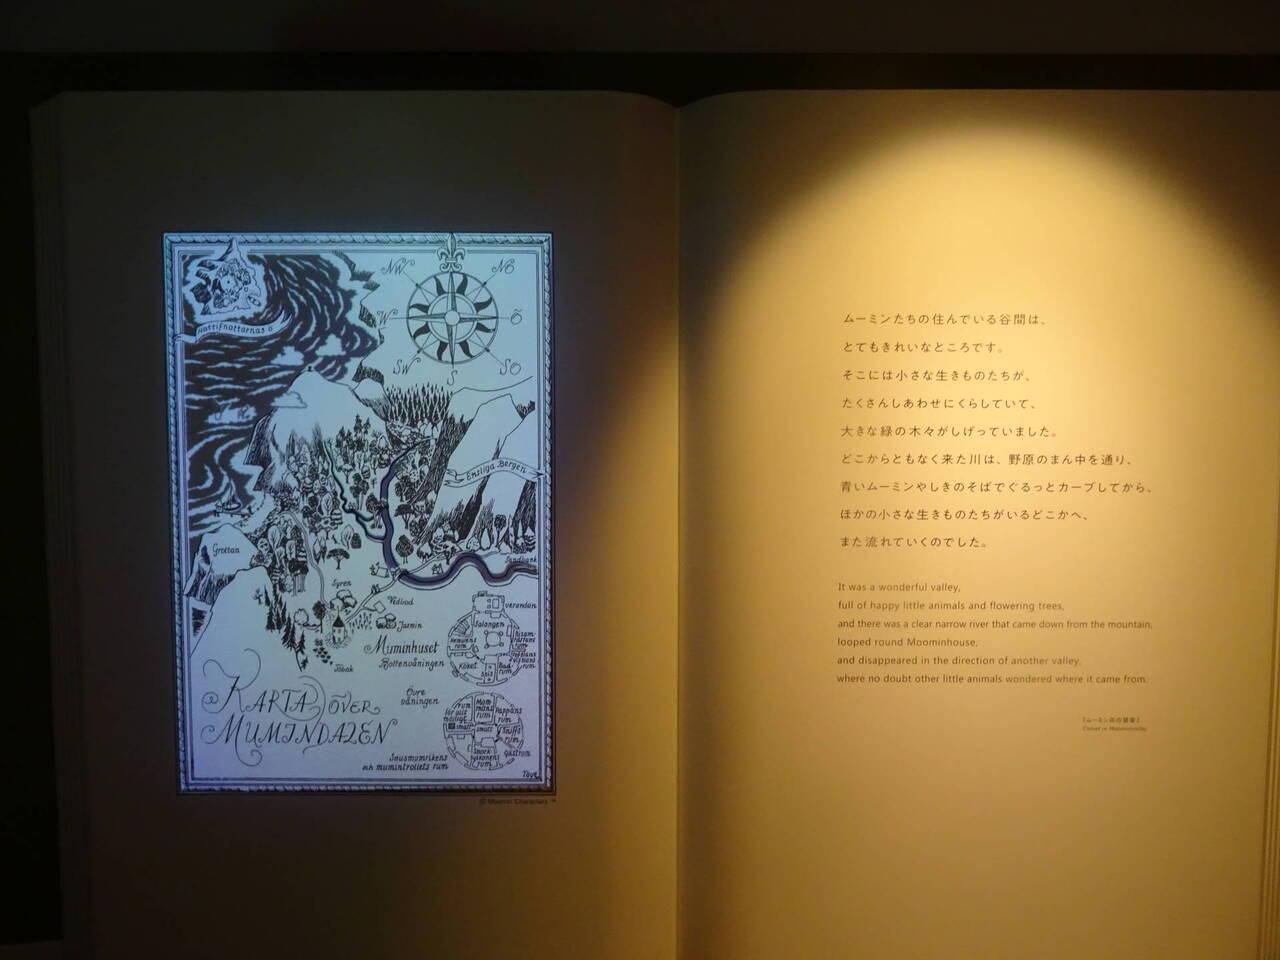 NW
NÖ
W
Ö
SW
S
SO
Hattifnattarnas ö
Ensliga Bergen
Grottan
Sandbank
Syren
Vedbod
Jasmin
Tobak
Muminhuset
Bottenvåningen
verandan
Salongen
Hemulens
rum
Köket
Bad
rum
Övre
våningen
rum
för allt
möjligt
smått
Mum
mans
rum
Pappans
rum
Sniffs
rum
smått
Snork
fröknens
rum
Gästrum
Snusmumrikens
och mumintrollets rum
KARTA ÖVER
MUMINDALEN
Tove
© Moomin Characters ™
ムーミンたちの住んでいる谷間は、
とてもきれいなところです。
そこには小さな生きものたちが、
たくさんしあわせにくらしていて、
大きな緑の木々がしげっていました。
どこからともなく来た川は、野原のまん中を通り、
青いムーミンやしきのそばでぐるっとカーブしてから、
ほかの小さな生きものたちがいるどこかへ、
また流れていくのでした。
It was a wonderful valley,
full of happy little animals and flowering trees,
and there was a clear narrow river that came down from the mountain,
looped round Moominhouse,
and disappeared in the direction of another valley,
where no doubt other little animals wondered where it came from.
『ムーミン谷の彗星』
Comet in Moominvalley